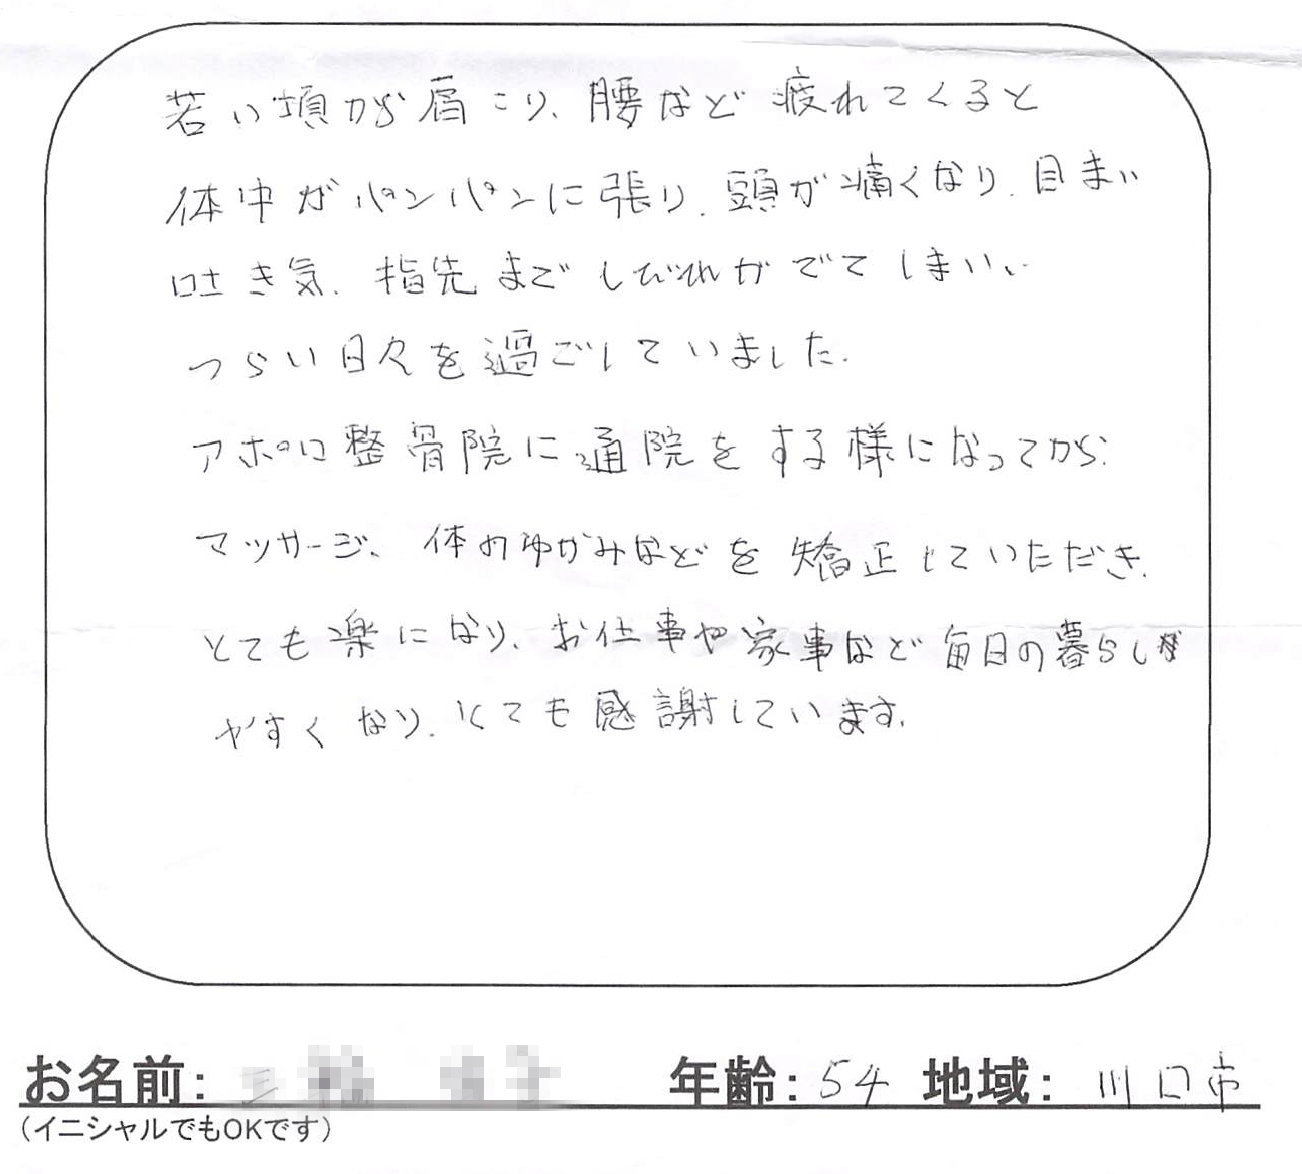 若い頃から肩こり、腰など疲れてくると
体中がパンパンに張り、頭が痛くなり、目まい
吐き気、指先までしびれがでてしまい、
つらい日々を過ごしていました。
アポロ整骨院に通院をする様になってから、
マッサージ、体のゆがみなどを矯正していただき、
とても楽になり、お仕事や家事など毎日の暮らしが
やすくなり、とても感謝しています。
お名前: 年齢: 54 地域: 川口市
(イニシャルでもOKです)